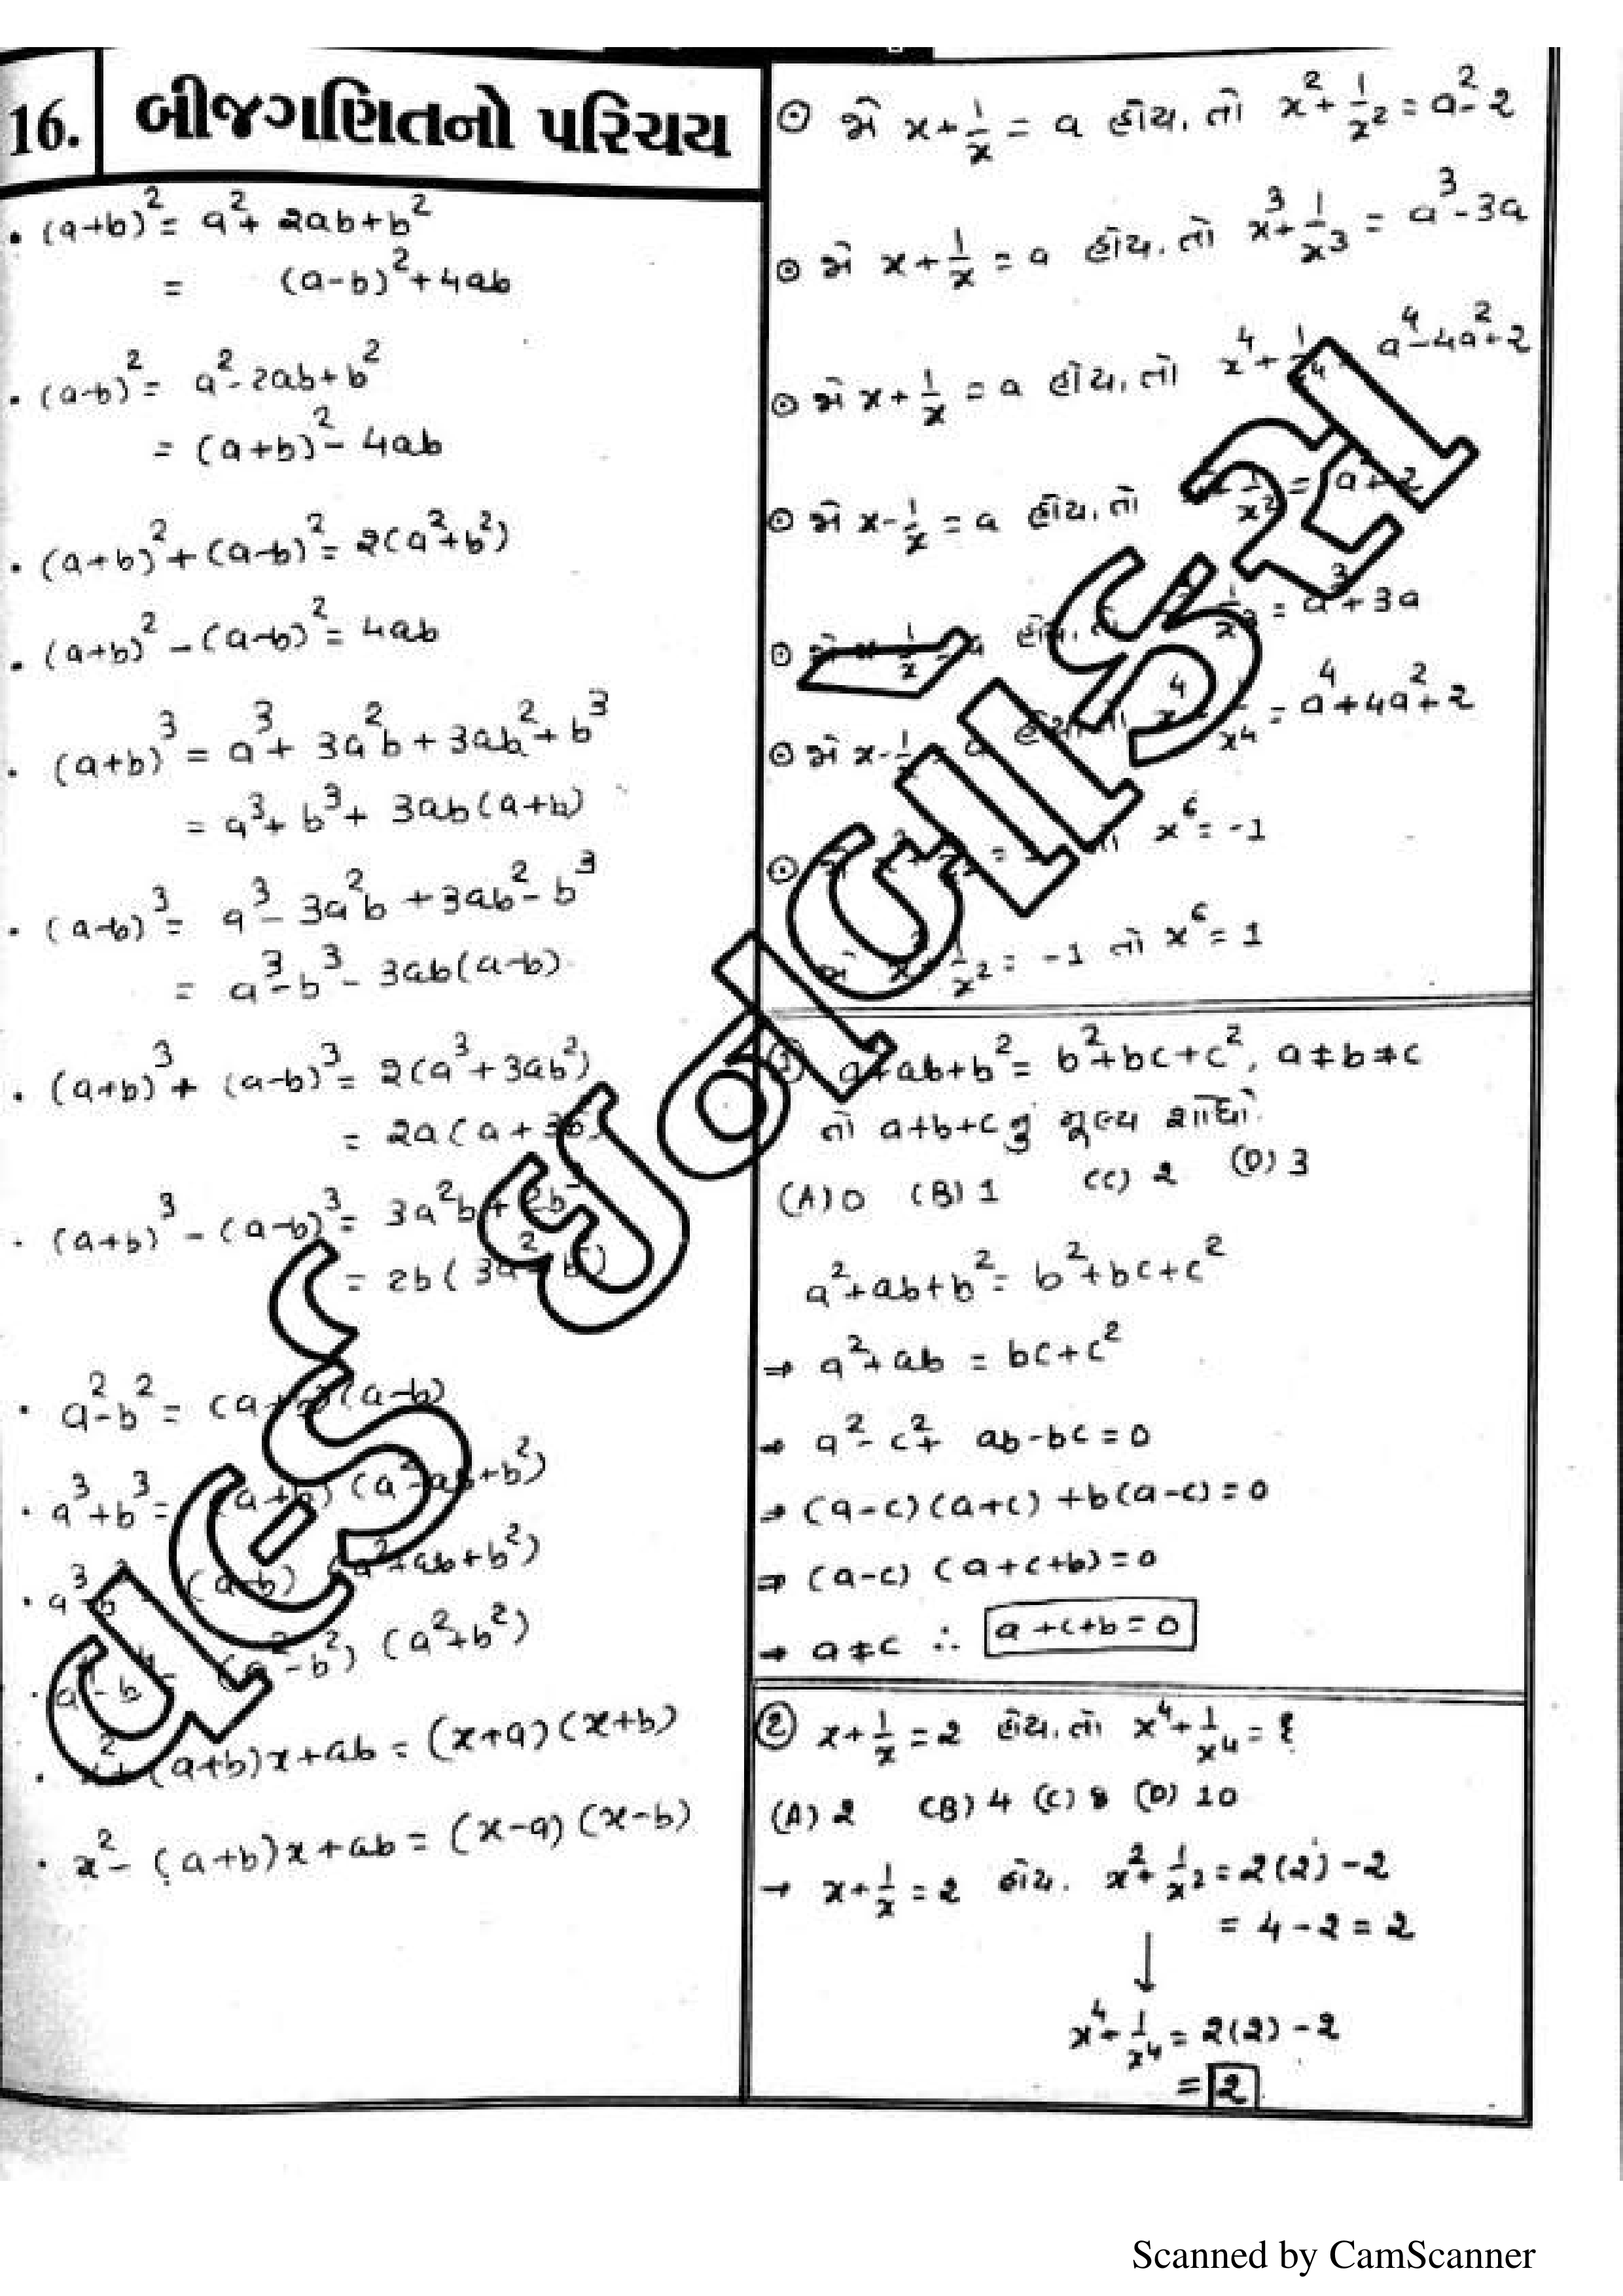 16.
બીજગણિતનો પરિચય
• (a+b)² = a² + 2ab + b²
= (a-b)² + 4ab
• (a-b)² = a² - 2ab + b²
= (a+b)² - 4ab
• (a+b)² + (a-b)² = 2(a²+b²)
• (a+b)² - (a-b)² = 4ab
• (a+b)³ = a³ + 3a²b + 3ab² + b³
= a³ + b³ + 3ab(a+b)
• (a-b)³ = a³ - 3a²b + 3ab² - b³
= a³ - b³ - 3ab(a-b)
• (a+b)³ + (a-b)³ = 2(a³ + 3ab²)
= 2a(a + 3b
• (a+b)³ - (a-b)³ = 3a²b + 2b
= 2b(3a² b²)
• a² - b² = (a+b)(a-b)
• a³ + b³ = (a+b)(a² - ab + b²)
• a³ - b³ (a-b) (a² + ab + b²)
• a⁴ - b⁴ = (a² - b²) (a² + b²)
• x² + (a+b)x + ab = (x+a)(x+b)
• x² - (a+b)x + ab = (x-a)(x-b)
⊙ જો x + 1/x = a હોય, તો x² + 1/x² = a² - 2
⊙ જો x + 1/x = a હોય, તો x³ + 1/x³ = a³ - 3a
⊙ જો x + 1/x = a હોય, તો x⁴ + 1/x⁴ a⁴ - 4a² + 2
⊙ જો x - 1/x = a હોય, તો 1/x² = a² + 2
⊙ જો x - 1/x = a હોય, તો 1/x³ = a³ + 3a
⊙ જો x - 1/x = a હોય, તો x⁴ + 1/x⁴ = a⁴ + 4a² + 2
⊙ x⁶ = -1
જો x² + 1/x² = -1 તો x⁶ = 1
① a² + ab + b² = b² + bc + c², a ≠ b ≠ c
તો a+b+c નું મૂલ્ય શોધો.
(A) 0 (B) 1 (C) 2 (D) 3
a² + ab + b² = b² + bc + c²
⇒ a² + ab = bc + c²
⇒ a² - c² + ab - bc = 0
⇒ (a-c)(a+c) + b(a-c) = 0
⇒ (a-c) (a+c+b) = 0
→ a ≠ c ∴ a + c + b = 0
② x + 1/x = 2 હોય, તો x⁴ + 1/x⁴ = ?
(A) 2 (B) 4 (C) 8 (D) 10
→ x + 1/x = 2 હોય. x² + 1/x² = 2(2) - 2
= 4 - 2 = 2
↓
x⁴ + 1/x⁴ = 2(2) - 2
= 2
Scanned by CamScanner